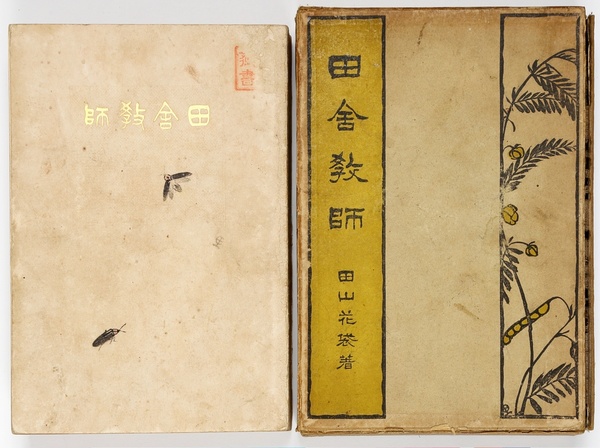 田舎教師
田舎教師
田山花袋著